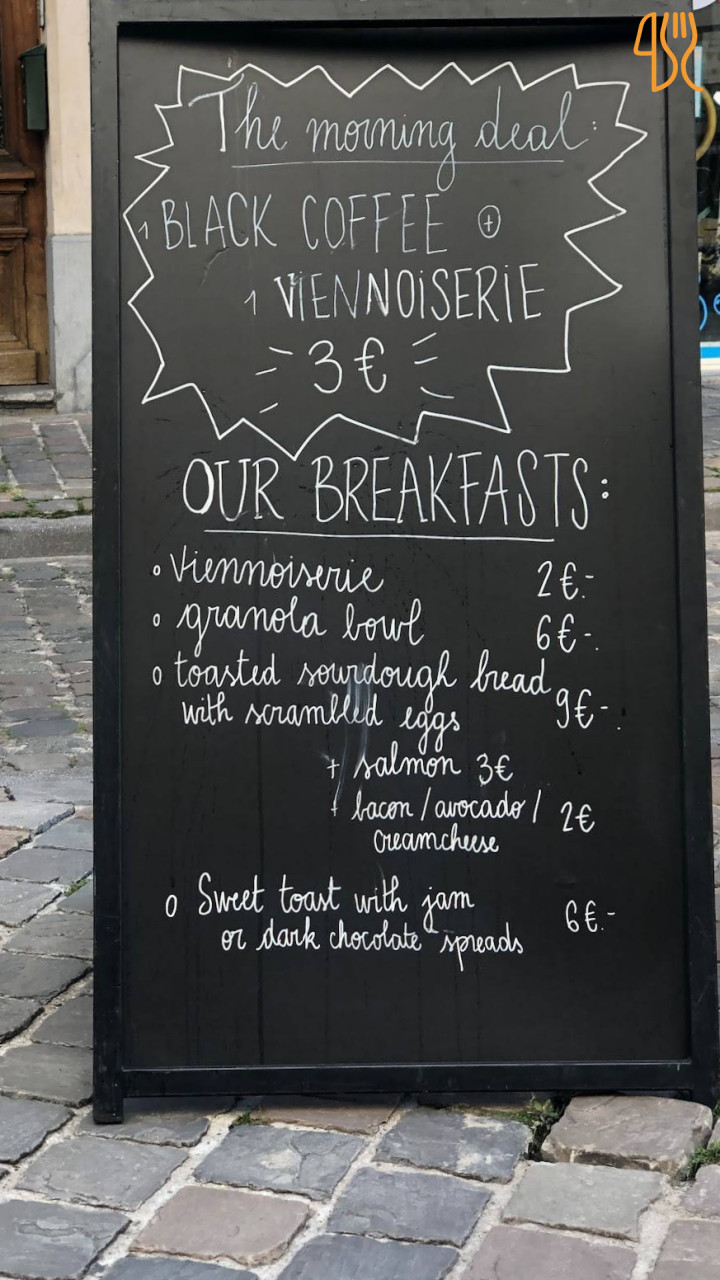 The morning deal:
1 BLACK COFFEE +
1 VIENNOISERIE
3€
OUR BREAKFASTS:
o viennoiserie 2€.-
o granola bowl 6€-.
o toasted sourdough bread
with scrambled eggs 9€-.
+ salmon 3€
+ bacon / avocado / 2€
creamcheese
o Sweet toast with jam
or dark chocolate spreads 6€.-